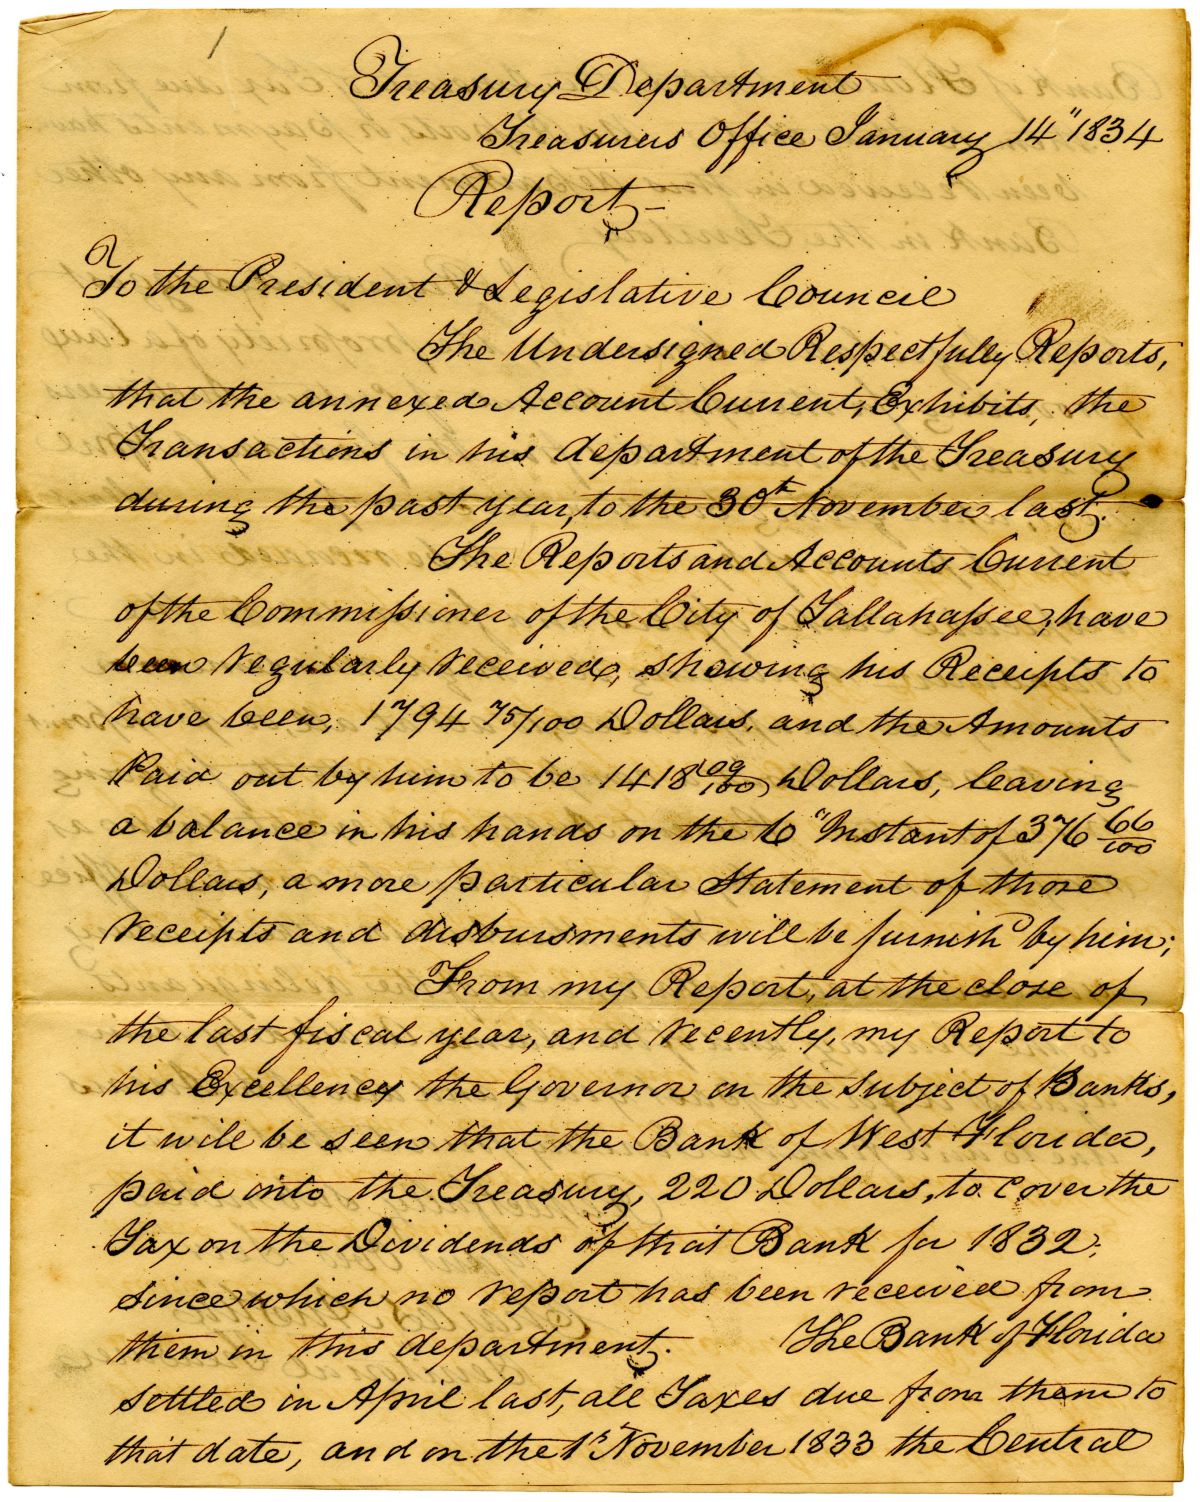 Treasury Department
Treasurers Office January 14" 1834
Report -
To the President & Legislative Council
The Undersigned Respectfully Reports,
that the annexed Account Current, Exhibits, the
Transactions in his department of the Treasury
during the past year, to the 30th November last.
The Reports and Accounts Current
of the Commissioner of the City of Tallahassee, have
been regularly received, shewing his Receipts to
have been, 1794 75/100 Dollars, and the Amounts
Paid out by him to be 1418 09/100 Dollars, leaving
a balance in his hands on the 6" Instant of 376 66/100
Dollars, a more particular Statement of those
receipts and disbursments will be furnishd by him;
From my Report, at the close of
the last fiscal year, and recently, my Report to
his Excellency the Governor on the subject of Banks,
it will be seen that the Bank of West Florida,
paid into the Treasury, 220 Dollars, to cover the
Tax on the Dividends of that Bank for 1832,
since which no report has been received from
them in this department. The Bank of Florida
settled in April last, all Taxes due from them to
that date, and on the 1st November 1833 the Central